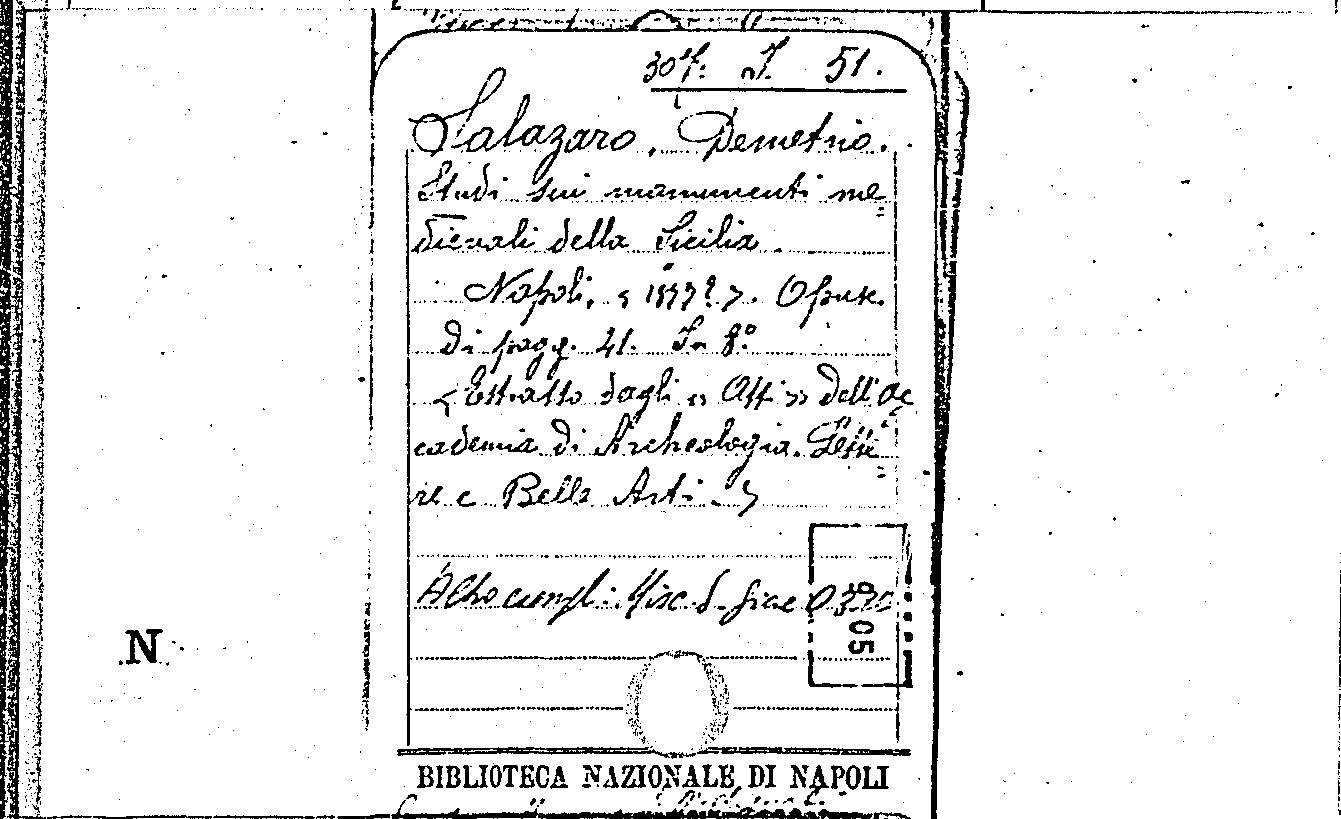 30 J. 51.
Salazaro, Demetrio.
Studi sui monumenti me=
dievali della Sicilia.
Napoli, <1877?>. Opusc.
di pagg. 41. In 8°
<Estratto dagli « Atti » dell'Ac
cademia di Archeologia. Lette=
re e Belle Arti.>
Altro : Misc.
05
N
BIBLIOTECA NAZIONALE DI NAPOLI